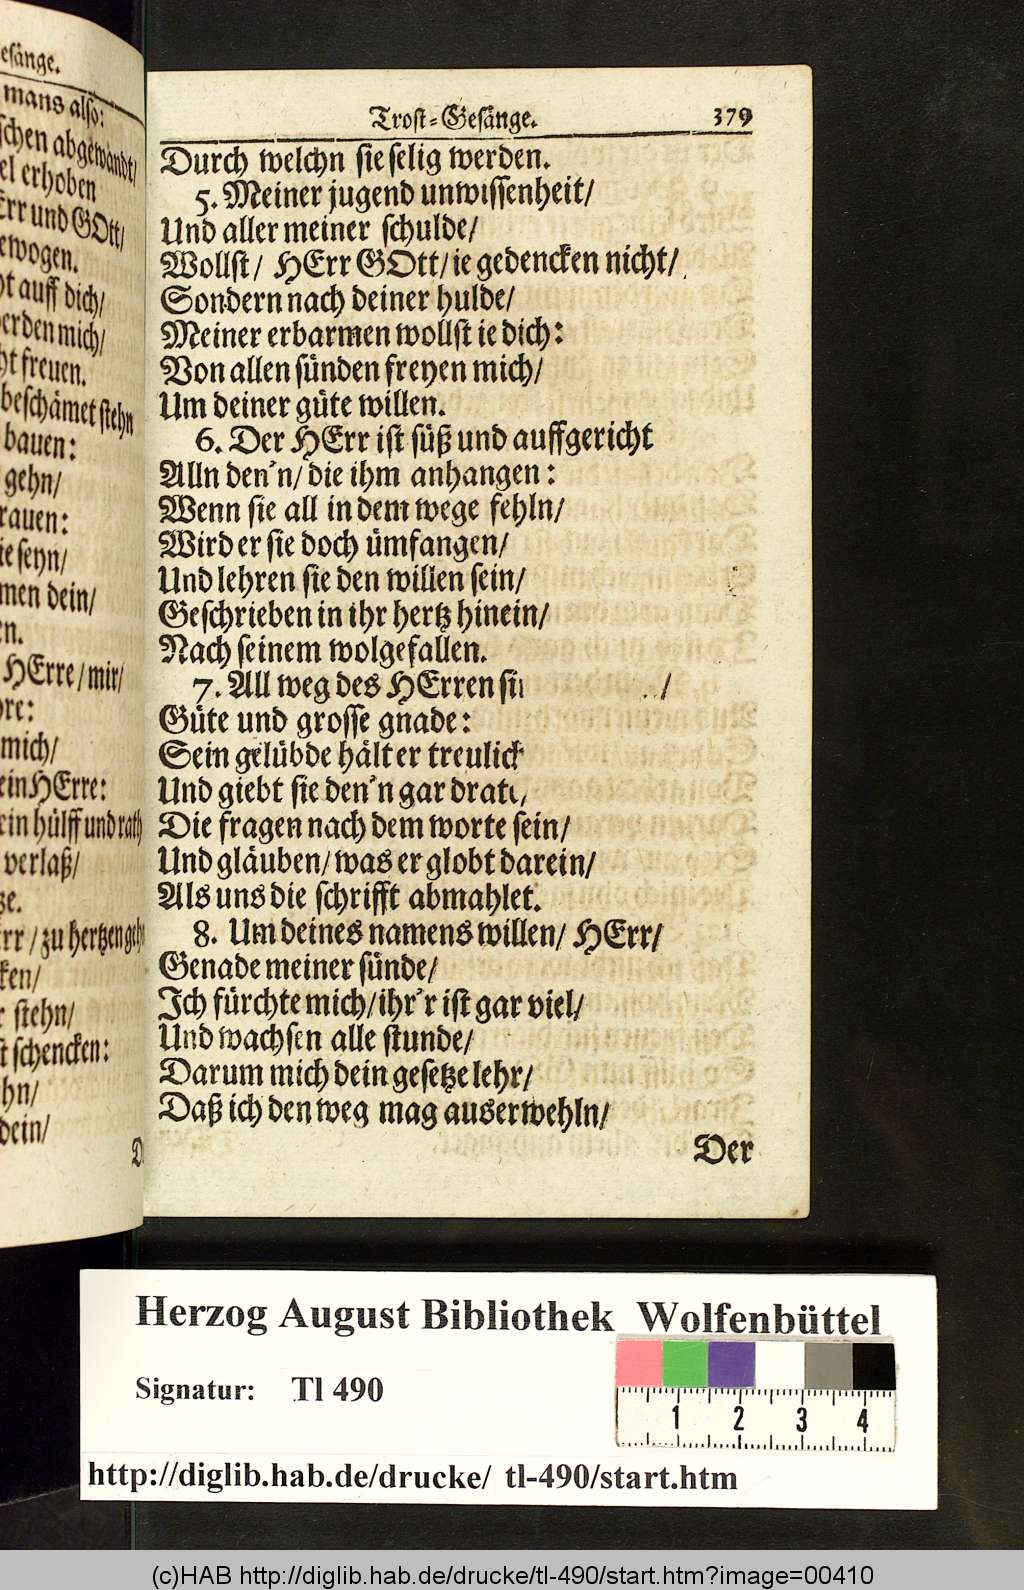 esänge.
mans also:
schen abgewandt/
el erhoben
Err und GOtt/
ewogen.
ht auff dich/
erden mich/
ht freuen.
beschämet stehn
bauen:
gehn/
rauen:
ie seyn/
men dein/
en.
HErre/mir/
re:
mich/
ein HErre:
ein hülff und rath
verlaß/
ze.
rr/zu hertzen gehn
ken/
r stehn/
st schencken:
hn/
dein/
Trost-Gesänge. 379
Durch welchn sie selig werden.
5. Meiner jugend unwissenheit/
Und aller meiner schulde/
Wollst/ HErr GOtt/ie gedencken nicht/
Sondern nach deiner hulde/
Meiner erbarmen wollst ie dich:
Von allen sünden freyen mich/
Um deiner güte willen.
6. Der HErr ist süß und auffgericht
Alln den'n/die ihm anhangen:
Wenn sie all in dem wege fehln/
Wird er sie doch ümfangen/
Und lehren sie den willen sein/
Geschrieben in ihr hertz hinein/
Nach seinem wolgefallen.
7. All weg des HErren /
Güte und grosse gnade:
Sein gelübde hält er treulich
Und giebt sie den'n gar drat,
Die fragen nach dem worte sein/
Und gläuben/was er globt darein/
Als uns die schrifft abmahlet.
8. Um deines namens willen/ HErr/
Genade meiner sünde/
Ich fürchte mich/ihr'r ist gar viel/
Und wachsen alle stunde/
Darum mich dein gesetze lehr/
Daß ich den weg mag auserwehln/
Der
Herzog August Bibliothek Wolfenbüttel
Signatur: Tl 490
1 2 3 4
http://diglib.hab.de/drucke/ tl-490/start.htm
(c)HAB http://diglib.hab.de/drucke/tl-490/start.htm?image=00410